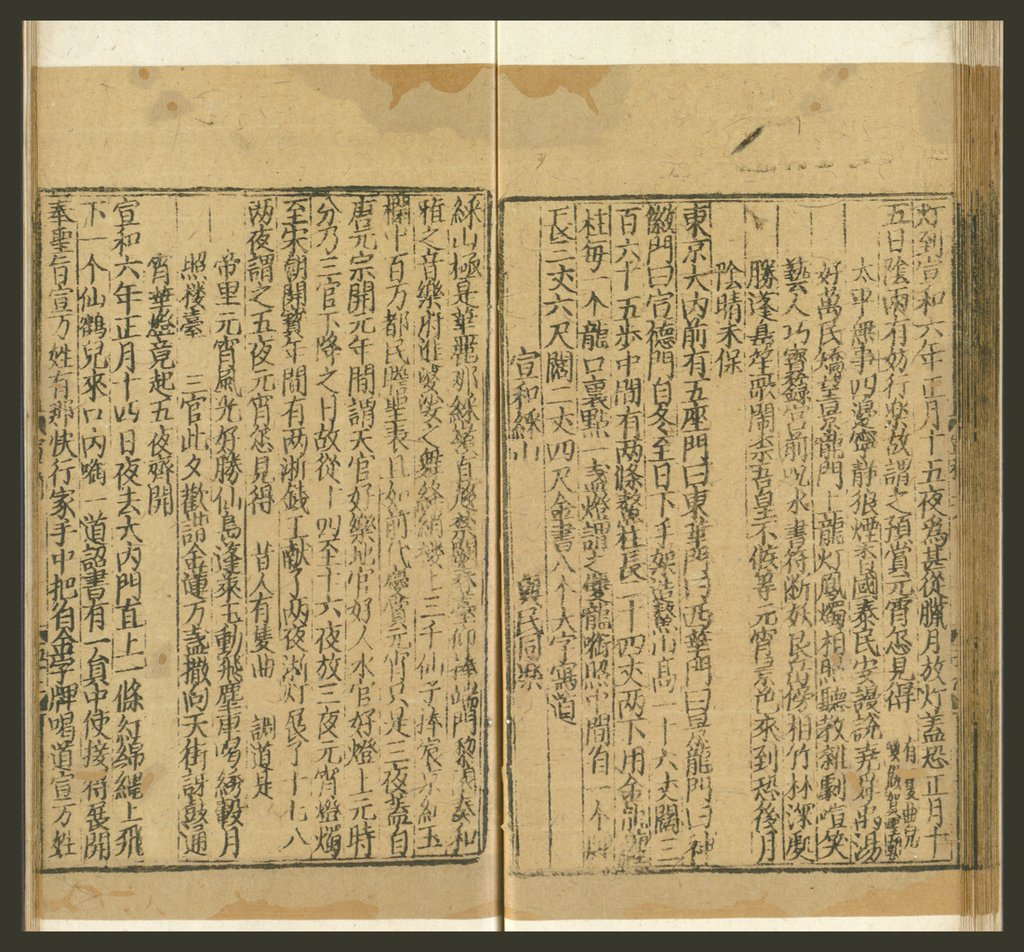 灯到宣和六年正月十五夜爲甚從臘月放灯盖恐正月十
五日隂雨有妨行樂故謂之預賞元宵怎見得
太平無事四邊寧靜狼煙
國泰民安謾說堯舜禹湯
好萬民矯望景龍門上龍灯鳳燭相照聽教雜劇喧笑
藝人巧寳籙宫前呪水書符断妖艮岳傍相竹林深處
勝蓬島笙歌鬧柰吾皇不待等元宵景色來到恐後月
隂晴未保
東京大内前有五座門曰東華門曰西華門曰景龍門曰神
徽門曰宣德門自冬至日下手架造鰲山高一十六丈闊三
百六十五步中間有两條鰲柱長二十四丈两下用金龍
柱每一个龍口裏點一盞燈謂之雙龍啣照中間有一个
長三丈六尺闊二丈四尺金書八个大字寫道
宣和綵山
與民同樂
綵山極是華麗那
雅之音樂府進
樓上三千仙子捧宸京紅玉
欄中百万都民瞻聖表且如前代慶賞元宵只是三夜盖自
唐元宗開元年間謂天官好樂地官好人水官好燈上元時
分乃三官下降之日故從十四至十六夜放三夜元宵燈燭
至宋朝開寳年間有两浙錢王献了两夜浙灯展了十七八
两夜謂之五夜元宵怎見得
昔人有隻曲
調道是
帝里元宵風光好勝仙島蓬萊玉動飛塵車喝綉轂月
照楼臺
三官此夕歡諧金蓮万盞撒向天街訝鼓通
宵華燈竟起五夜齊開
宣和六年正月十四日夜去大内門直上一條紅綿繩上飛
下一个仙鶴兒來口内啣一道詔書有一員中使接得展開
奉聖旨宣万姓有那快行家手中把着金字牌喝道宣万姓